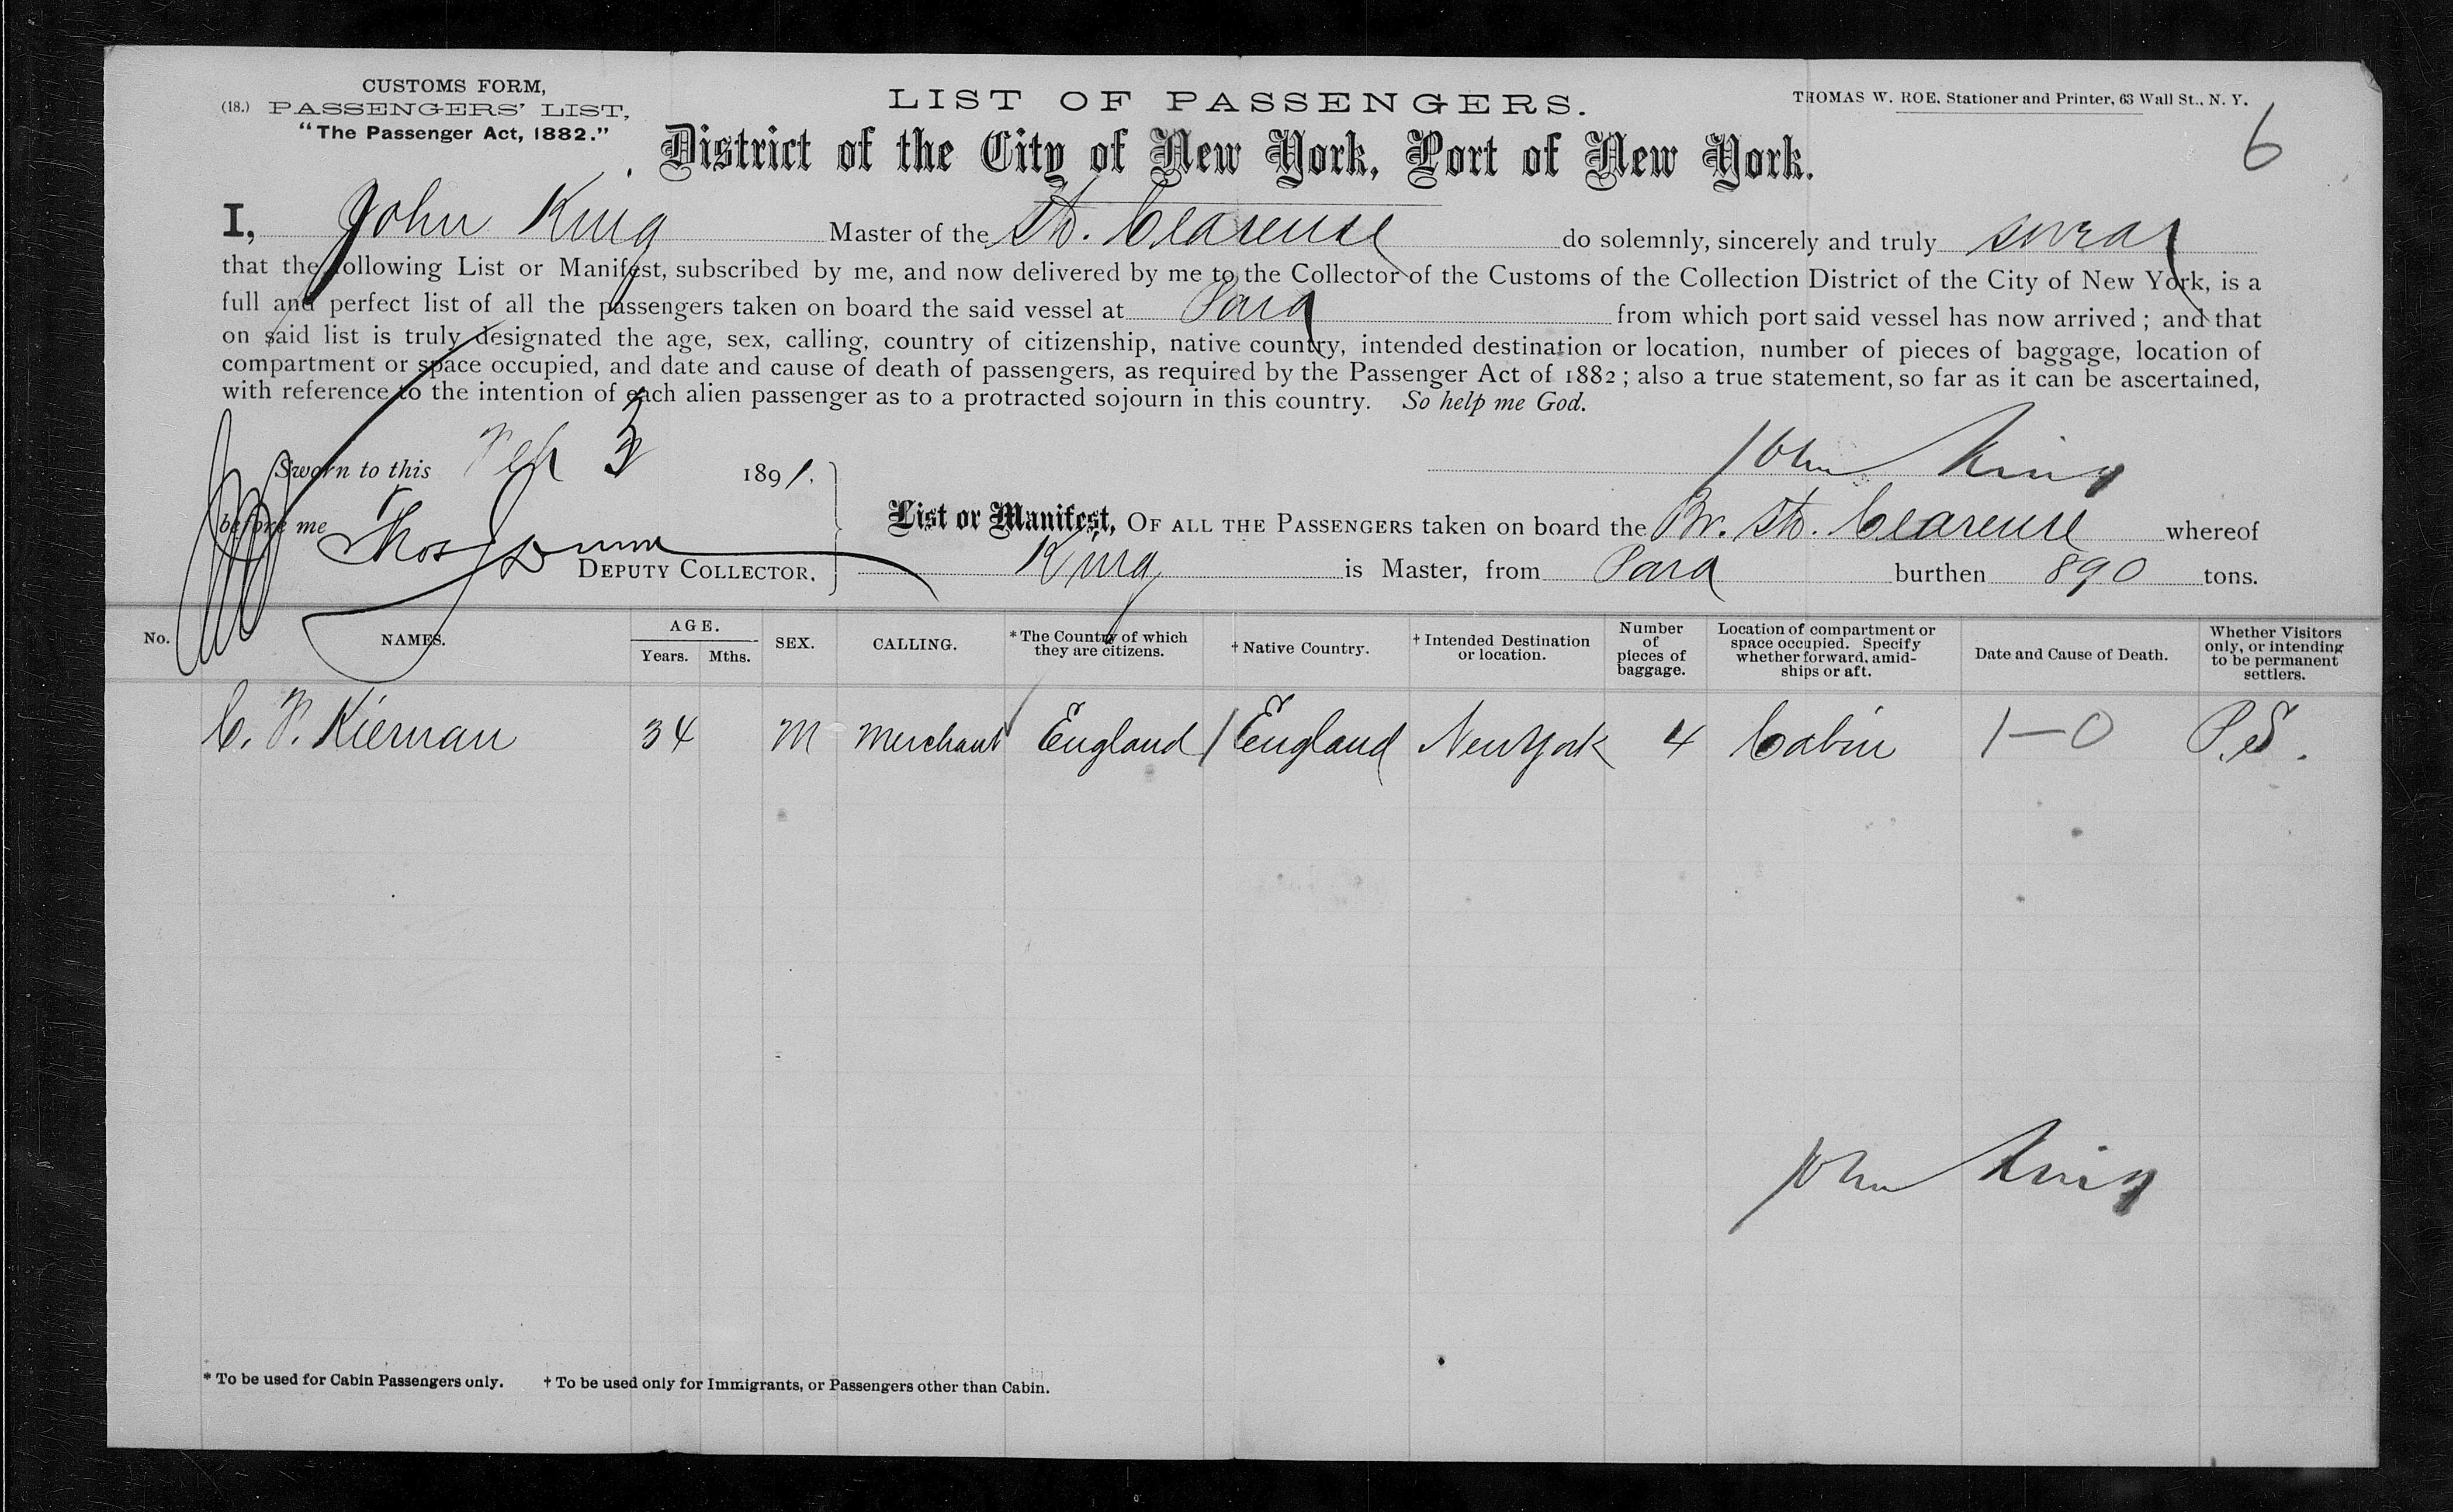 CUSTOMS FORM,
(18.) PASSENGERS' LIST,
"The Passenger Act, 1882."
LIST OF PASSENGERS.
THOMAS W. ROE, Stationer and Printer, 63 Wall St., N. Y.
6
District of the City of New York, Port of New York.
I, John King Master of the Str. Clarense do solemnly, sincerely and truly swear
that the following List or Manifest, subscribed by me, and now delivered by me to the Collector of the Customs of the Collection District of the City of New York, is a
full and perfect list of all the passengers taken on board the said vessel at Para from which port said vessel has now arrived; and that
on said list is truly designated the age, sex, calling, country of citizenship, native country, intended destination or location, number of pieces of baggage, location of
compartment or space occupied, and date and cause of death of passengers, as required by the Passenger Act of 1882; also a true statement, so far as it can be ascertained,
with reference to the intention of each alien passenger as to a protracted sojourn in this country. So help me God.
Sworn to this Feb 3 1891.
John King
before me Thos
DEPUTY COLLECTOR.
List or Manifest, OF ALL THE PASSENGERS taken on board the Br. Str. Clarense whereof
King is Master, from Para burthen 890 tons.
No. NAMES. AGE. Years. Mths. SEX. CALLING. * The Country of which they are citizens. † Native Country. † Intended Destination or location. Number of pieces of baggage. Location of compartment or space occupied. Specify whether forward, amid-ships or aft. Date and Cause of Death. Whether Visitors only, or intending to be permanent settlers.
C. F. Kiernan 34 M Merchant England England New York 4 Cabin 1—0 P.S.
John King
* To be used for Cabin Passengers only. † To be used only for Immigrants, or Passengers other than Cabin.